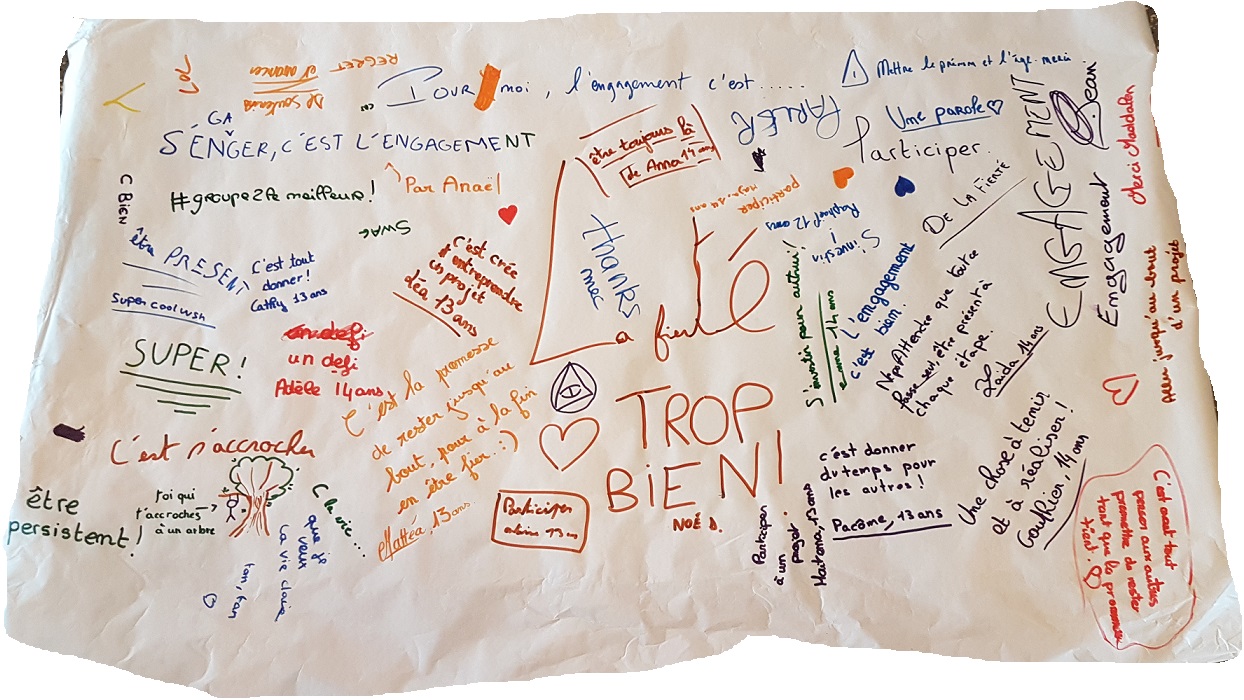 Pour moi, l'engagement c'est......
Mettre le prénom et l'âge. merci
LOL
REGRET et avancer
se soutenir
GA
S'ENGER, C'EST L'ENGAGEMENT
Par Anaël
être toujours là
de Anna 14 ans
PARLER
Une parole
Participer.
ENGAGEMENT
Jean
Engagement
Merci Maddalen
C BIEN
#groupe2le meilleur!
SWAG
être PRESENT
C'est tout
donner!
Cathy 13 ans
Super cool wsh
SUPER!
un defi
un defi
Adèle 14 ans
C'est crée
entreprendre
un projet
Léa 13 ans
thanks
mec
La fierté
participer
DE LA FIERTÉ
S'investir
Raphaël 12 ans
S'investir pour autrui!
emme 14 ans
l'engagement
c'est bien.
N'epAttendre que tout ce
passe seul, être présent à
chaque étape.
Zaida 14 ans
Aller jusqu'au bout
d'un projet
C'est la promesse
de rester jusqu'au
bout, pour à la fin
en être fier. :)
Mattéa, 13 ans
TROP
BIEN!
NOÉ D.
C'est s'accrocher
être
persistent!
toi qui
t'accroches
à un arbre
C la vie...
que je
veux
La vie claire
fan, fan
Participer
13 ans
Participer
à un
projet
13 ans
c'est donner
du temps pour
les autres!
Pacôme, 13 ans
Une chose à tenir
et à réaliser!
Gauffrier, 14 ans
C'est avant tout
penser aux autres
promettre de rester
tant que la promesse
tient